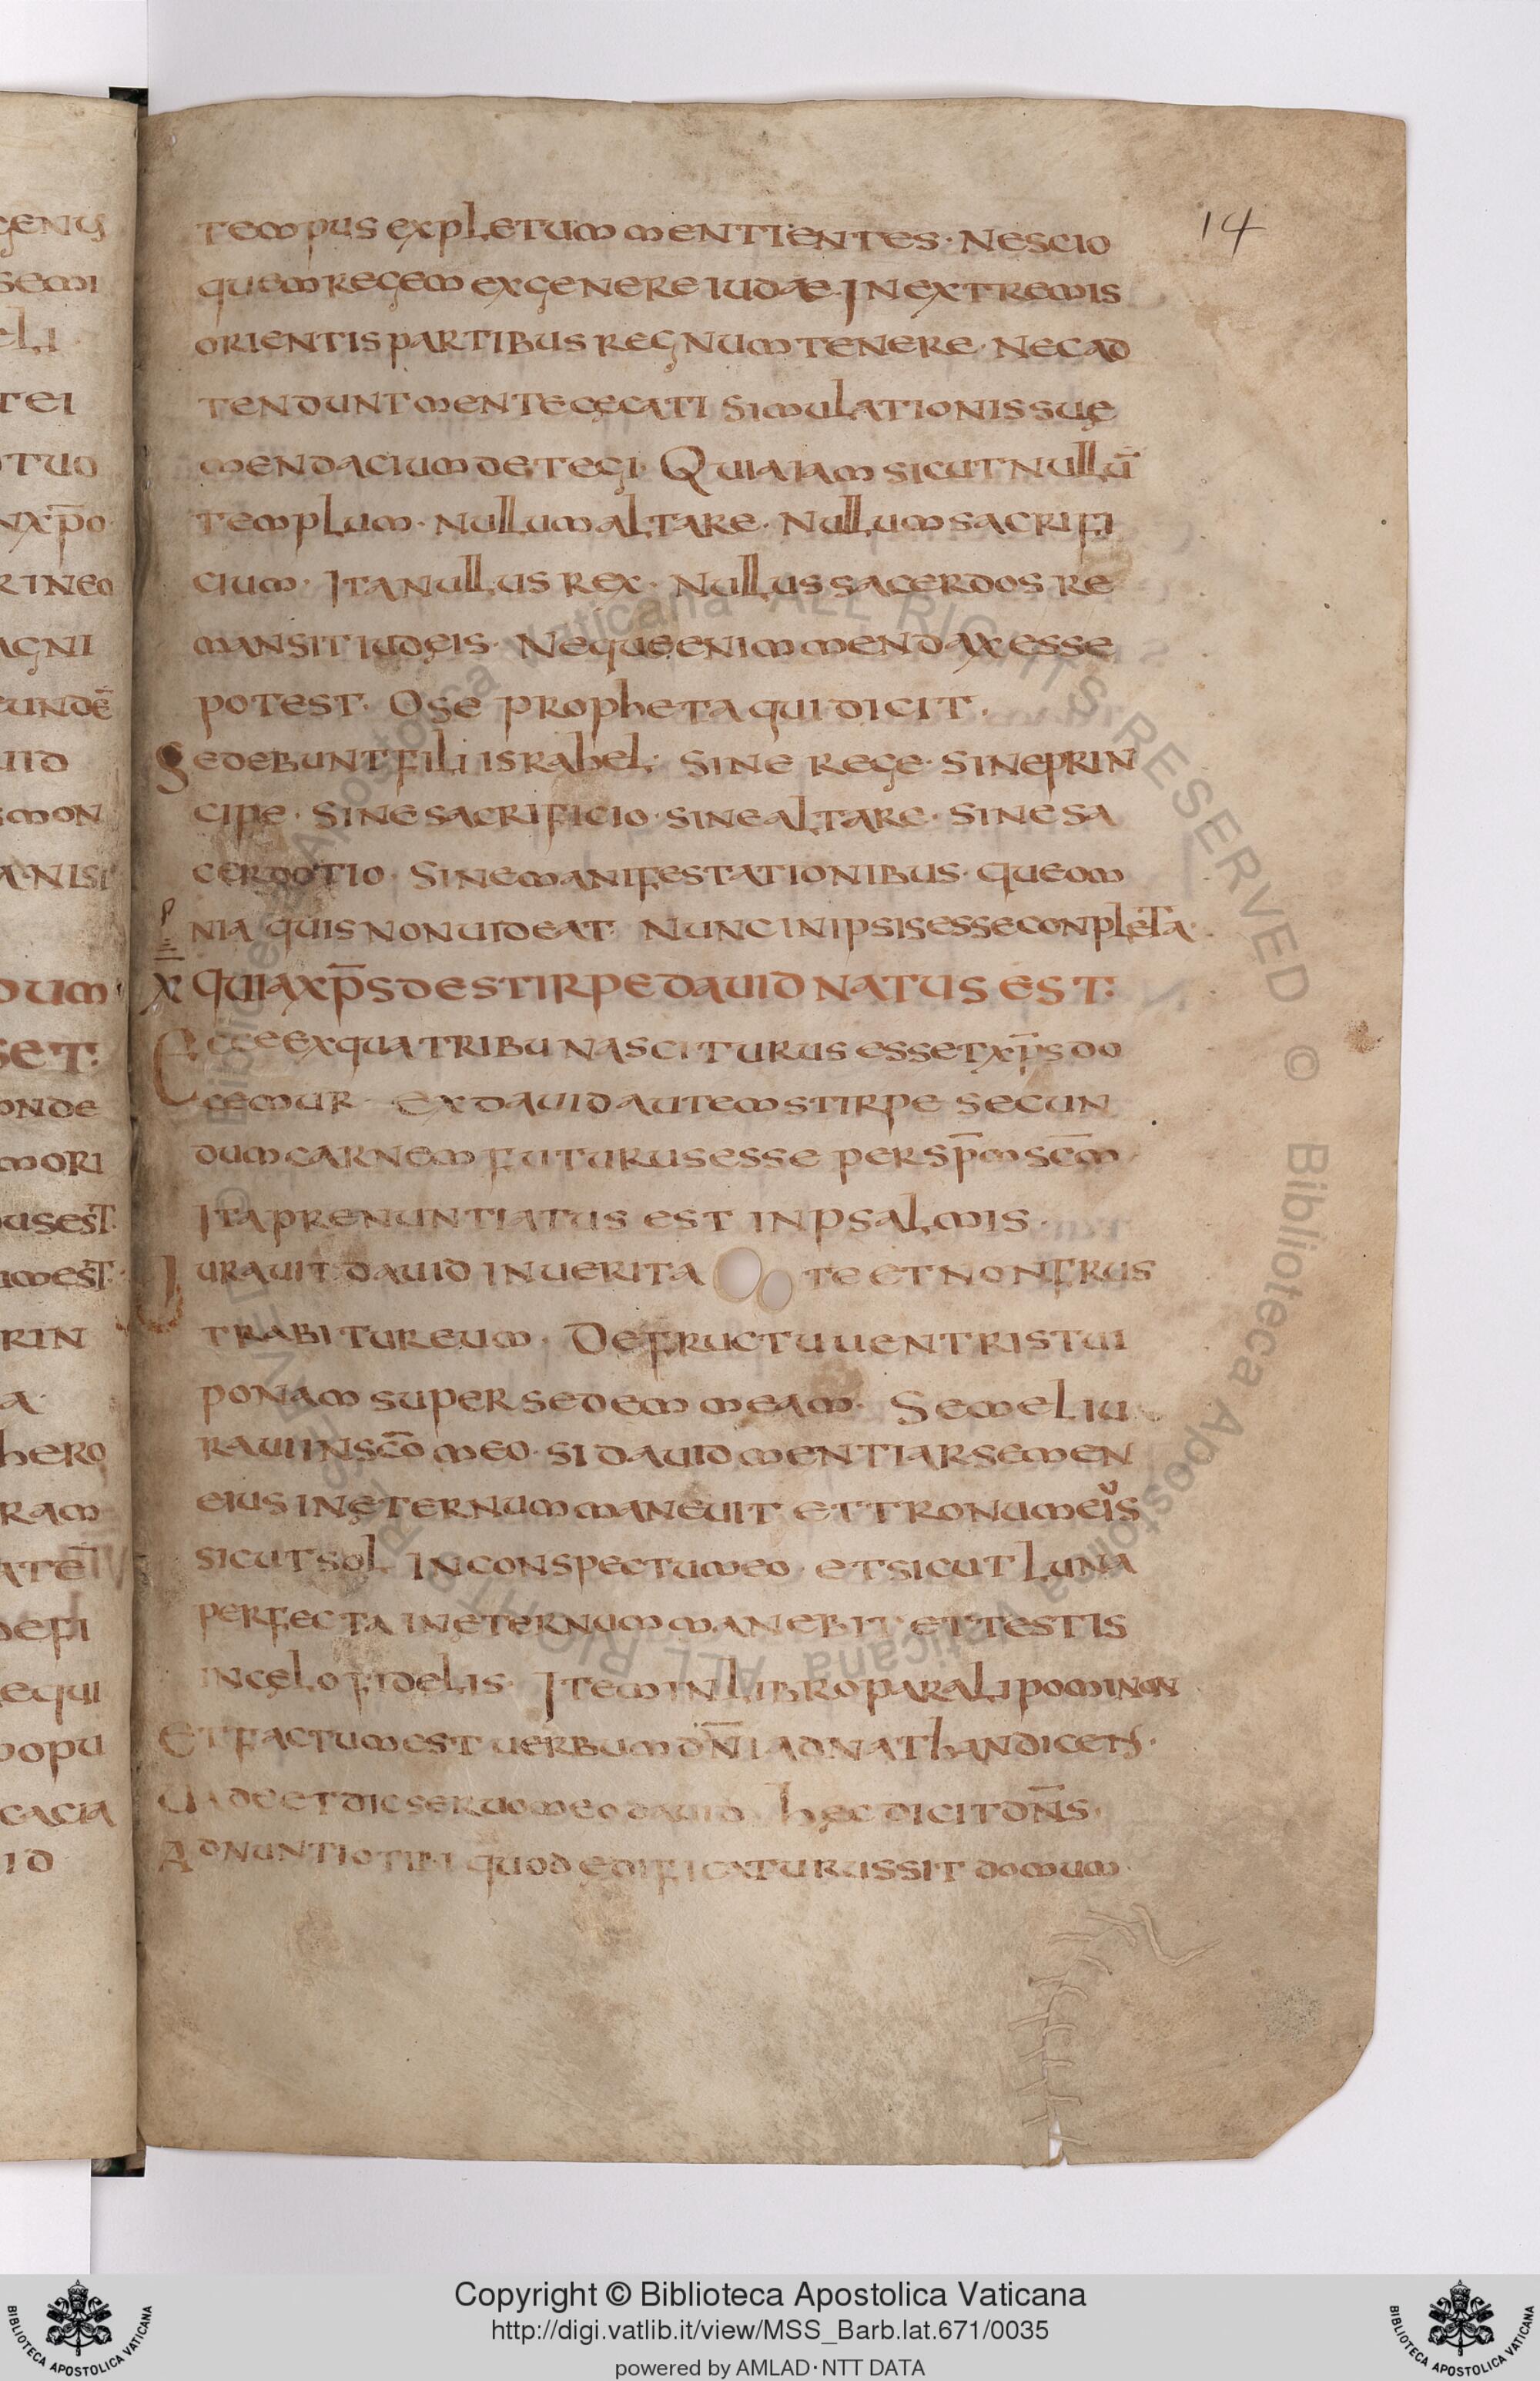 14
tempus expletum mentientes· Nescio
quem regem exgenere iudae· Inextremis
orientis partibus regnum tenere· necad
tendunt mente cęcati simulationis suę
mendacium detegi· Quia iam sicut nullū
templum· nullum altare· Nullum sacrifi
cium· Ita nullus rex· Nullus sacerdos re
mansit iudęis· Neque enim mendax esse
potest· Ose propheta qui dicit·
Sedebunt fili israhel· Sine rege· sine prin
cipe· sine sacrificio· sine altare· sine sa
cerdotio· Sine manifestationibus· que om
nia quis non uideat· Nunc in ipsis esse conpleta·
X quia xp̄s destirpe dauid natus est:
Ecce exqua tribu nasciturus esset xp̄s do
cemur· Ex dauid autem stirpe secun
dum carnem futurus esse per sp̄m sc̄m·
Ita prenuntiatus est in psalmis·
Iurauit dauid in uerita te et non frus
trabitur eum· De fructu uentris tui
ponam super sedem meam· Semel iu
raui in sc̄o meo· si dauid mentiar semen
eius in ęternum maneuit et tronum eius
sicut sol in conspectu meo et sicut luna
perfecta in ęternum manebit et testis
in cęlo fidelis· Item in libro paralipominon
Et factum est uerbum dn̄i ad nathan dicens·
Uade et dic seruo meo dauid hęc dicit dn̄s·
Adnuntio tibi quod edificaturus sit domum·
genus
semi
eli
tei
tuo
nxp̄o·
rineo
agni
eundē
uid
smon
a·nisi
dum·
set:
onde
mori
usest·
umest·
rin
a·
hero
ram
ate
defi
equi
popu
cacia
id
Copyright © Biblioteca Apostolica Vaticana
http://digi.vatlib.it/view/MSS_Barb.lat.671/0035
powered by AMLAD·NTT DATA
BIBLIOTECA APOSTOLICA VATICANA
BIBLIOTECA APOSTOLICA VATICANA
© Biblioteca Apostolica Vaticana ALL RIGHTS RESERVED © Biblioteca Apostolica Vaticana ALL RIGHTS RESERVED